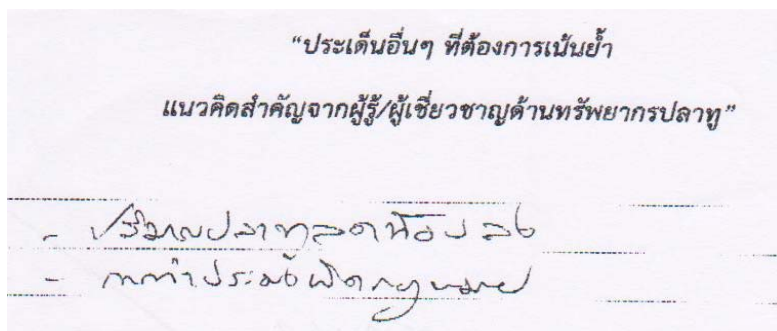 “ประเด็นอื่นๆ ที่ต้องการเน้นย้ำ
แนวคิดสำคัญจากผู้รู้/ผู้เชี่ยวชาญด้านทรัพยากรปลาทู”
- ปริมาณปลาทูลดน้อยลง
- การทำประมงผิดกฎหมาย